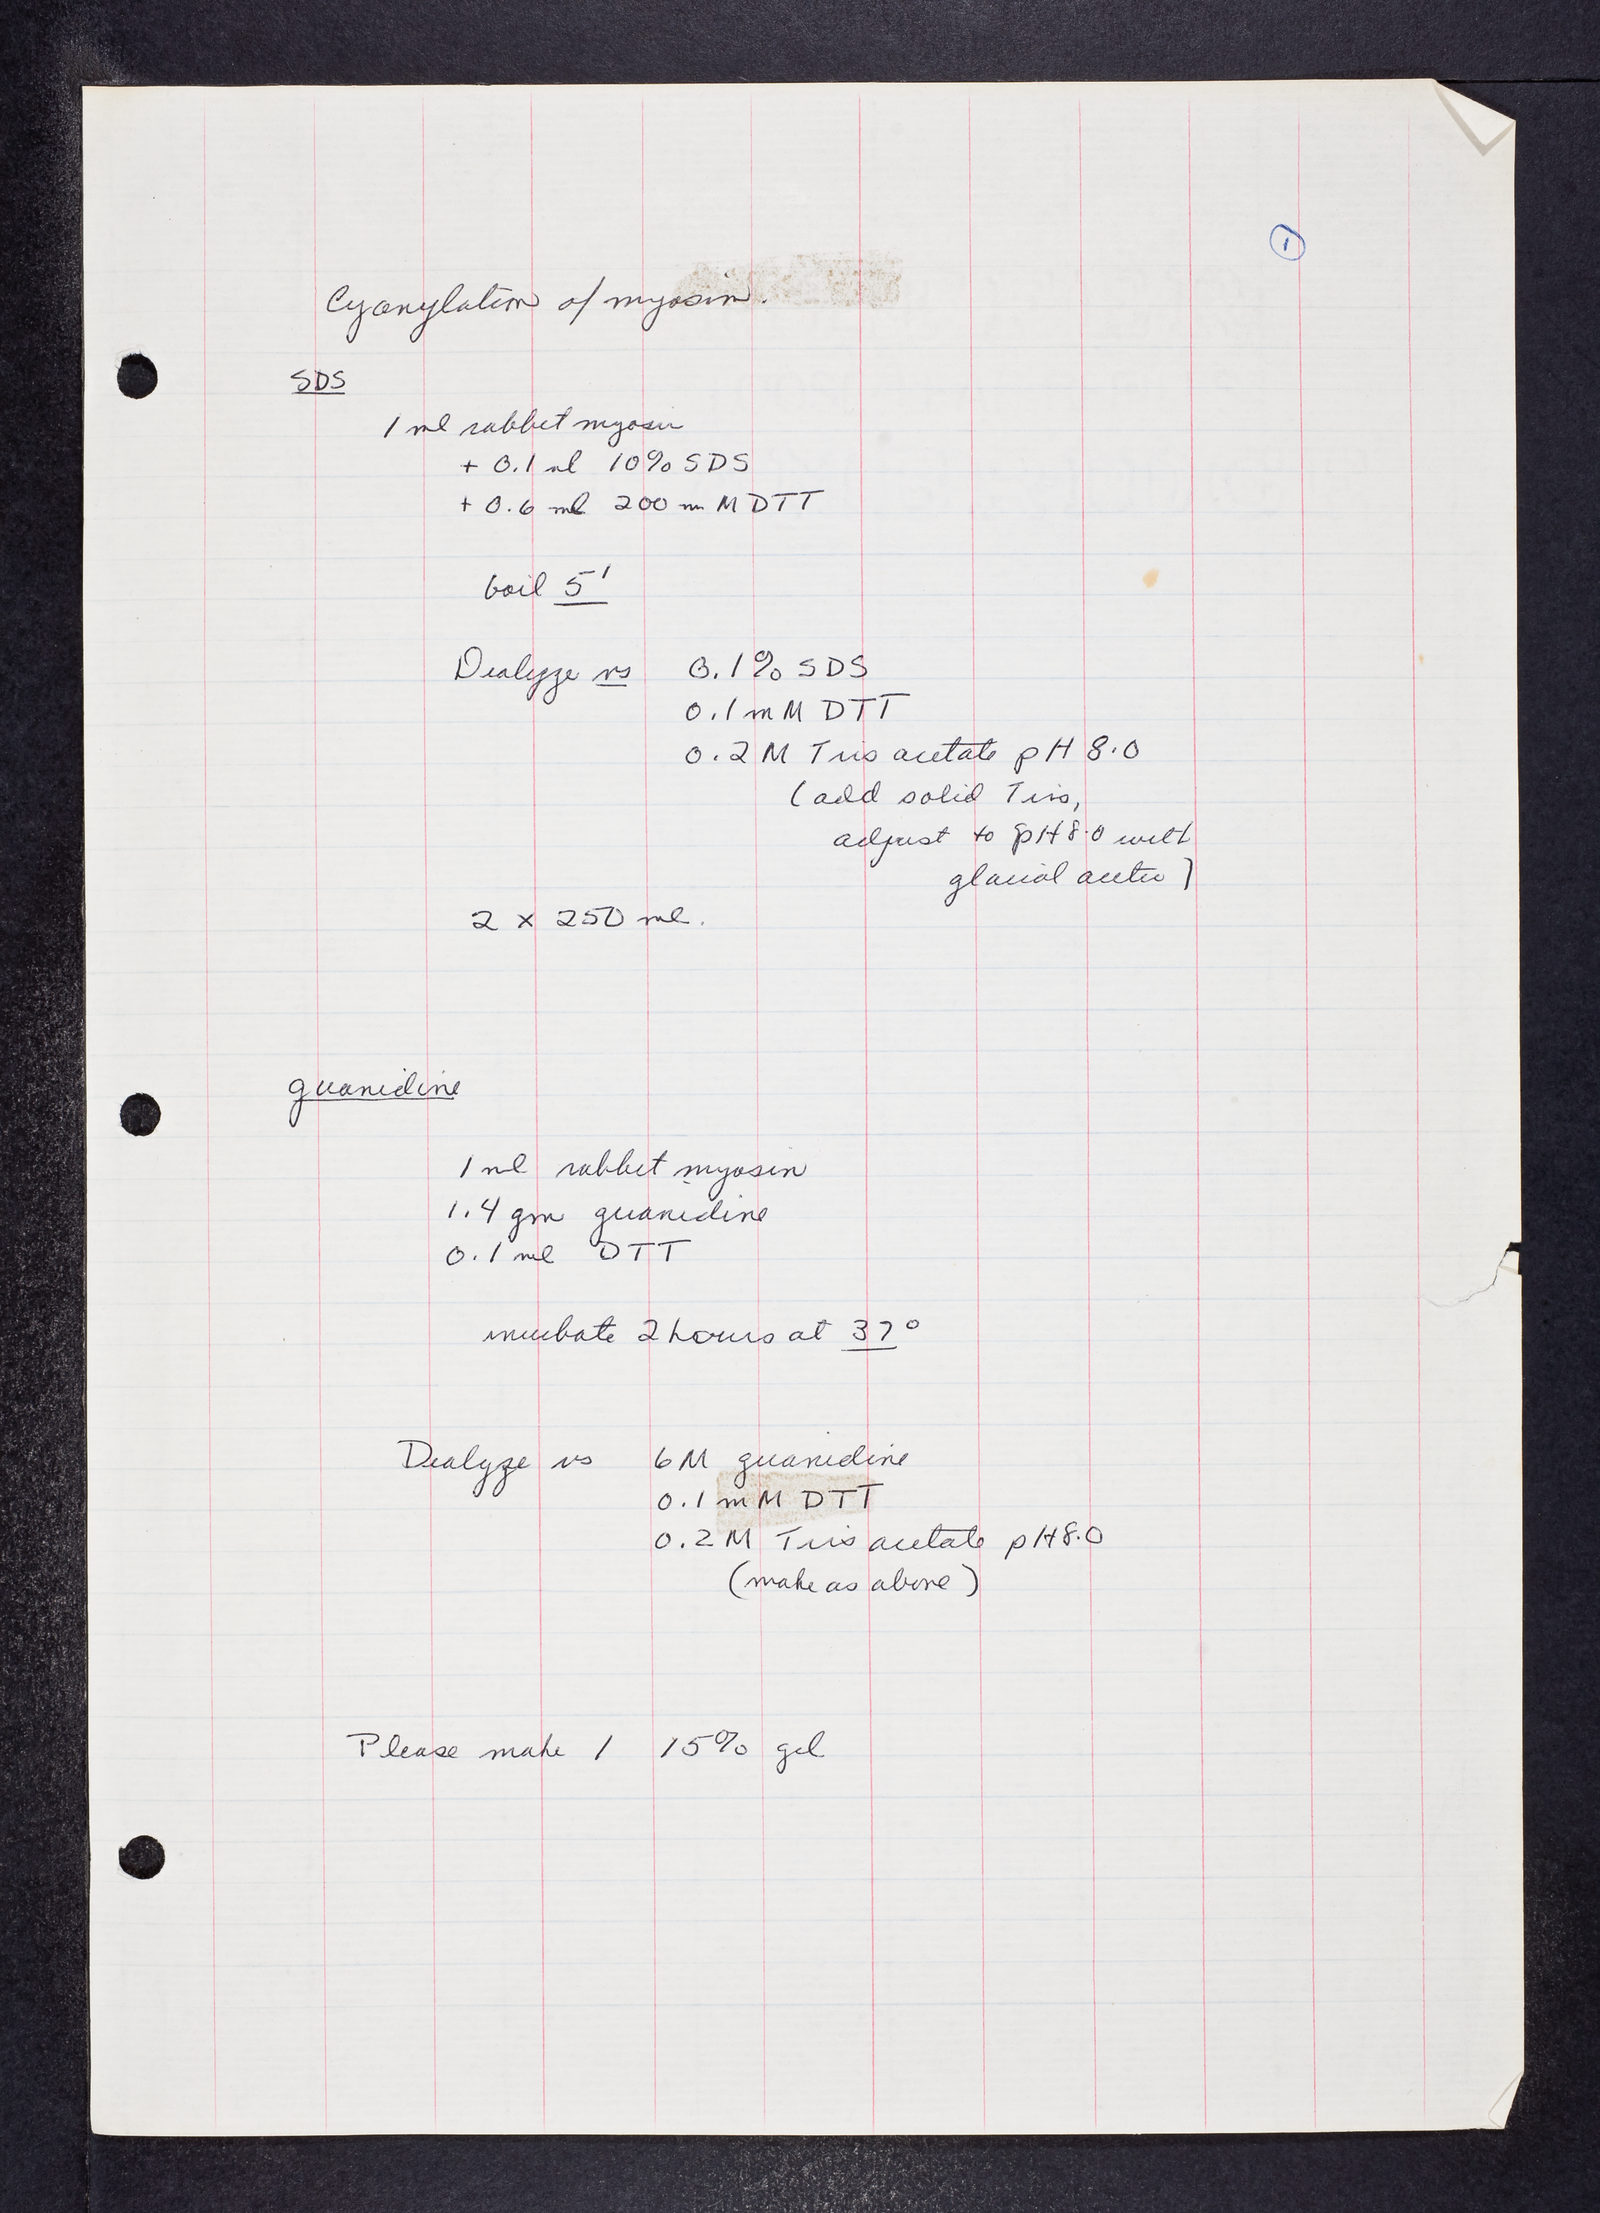 1
Cyanylation of myosin.
SDS
1 ml rabbit myosin
+ 0.1 ml 10% SDS
+ 0.6 ml 200 mM DTT
boil 5'
Dialyze vs 0.1% SDS
0.1 mM DTT
0.2 M Tris acetate pH 8.0
(add solid Tris,
adjust to pH 8.0 with
glacial acetic)
2 x 250 ml.
guanidine
1 ml rabbit myosin
1.4 gm guanidine
0.1 ml DTT
incubate 2 hours at 37°
Dialyze vs 6M guanidine
0.1 mM DTT
0.2 M Tris acetate pH 8.0
(make as above)
Please make 1 15% gel